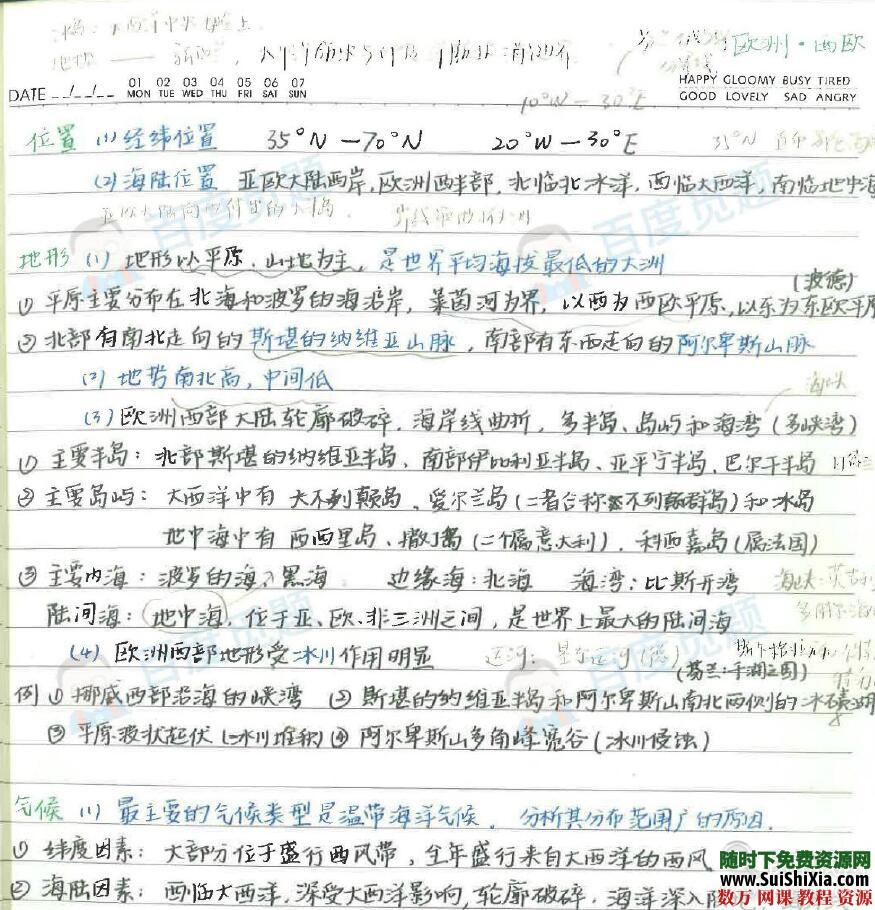 冰岛：大西洋中央
欧洲·西欧
DATE 01 MON 02 TUE 03 WED 04 THU 05 FRI 06 SAT 07 SUN
HAPPY GLOOMY BUSY TIRED
GOOD LOVELY SAD ANGRY
10°W — 30°E
位置 (1) 经纬位置 35°N — 70°N 20°W — 30°E 35°N
(2) 海陆位置 亚欧大陆西岸，欧洲西半部，北临北冰洋，西临大西洋，南临地中海
亚欧大陆向西伸出的大
地形 (1) 地形以平原、山地为主，是世界平均海拔最低的大洲
(波德)
① 平原主要分布在北海和波罗的海沿岸，莱茵河为界，以西为西欧平原，以东为东欧平原
② 北部有南北走向的斯堪的纳维亚山脉，南部有东西走向的阿尔卑斯山脉
(2) 地势南北高，中间低
(3) 欧洲西部大陆轮廓破碎，海岸线曲折，多半岛、岛屿和海湾（多峡湾）
① 主要半岛：北部斯堪的纳维亚半岛、南部伊比利亚半岛、亚平宁半岛、巴尔干半岛
② 主要岛屿：大西洋中有 大不列颠岛、爱尔兰岛（二者合称不列颠群岛）和冰岛
地中海中有 西西里岛、撒丁岛（二个属意大利）、科西嘉岛（属法国）
③ 主要内海：波罗的海、黑海 边缘海：北海 海湾：比斯开湾
陆间海：地中海，位于亚、欧、非三洲之间，是世界上最大的陆间海
(4) 欧洲西部地形受冰川作用明显 运河：基尔运河(德)
(芬兰：千湖之国)
例 ① 挪威西部沿海的峡湾 ② 斯堪的纳维亚半岛和阿尔卑斯山南北两侧的冰碛湖
③ 平原波状起伏（冰川堆积） ④ 阿尔卑斯山多角峰宽谷（冰川侵蚀）
气候 (1) 最主要的气候类型是温带海洋气候。 分析其分布范围广的原因。
① 纬度因素：大部分位于盛行西风带，全年盛行来自大西洋的西风
② 海陆因素：西临大西洋，深受大西洋影响，轮廓破碎，海洋深入
百度觅题
百度觅题
百度觅题
百度觅题
随时下免费资源网
www.SuiShiXia.com
数万网课教程资源